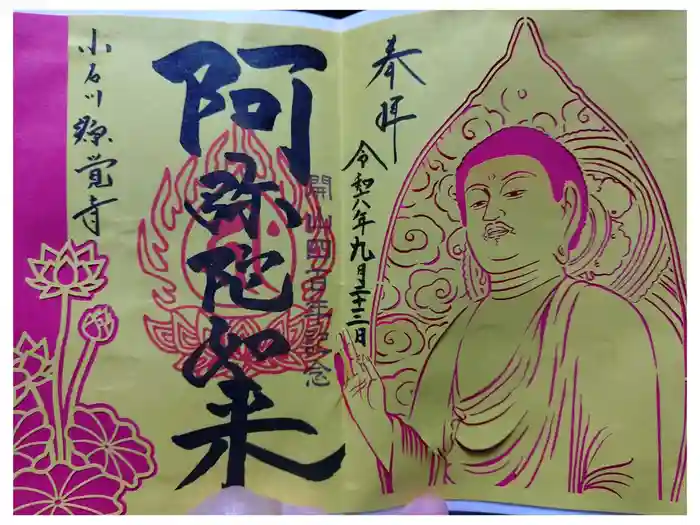 奉拝
令和六年九月二十三日
阿弥陀如来
開山四百年記念
小石川 源覚寺